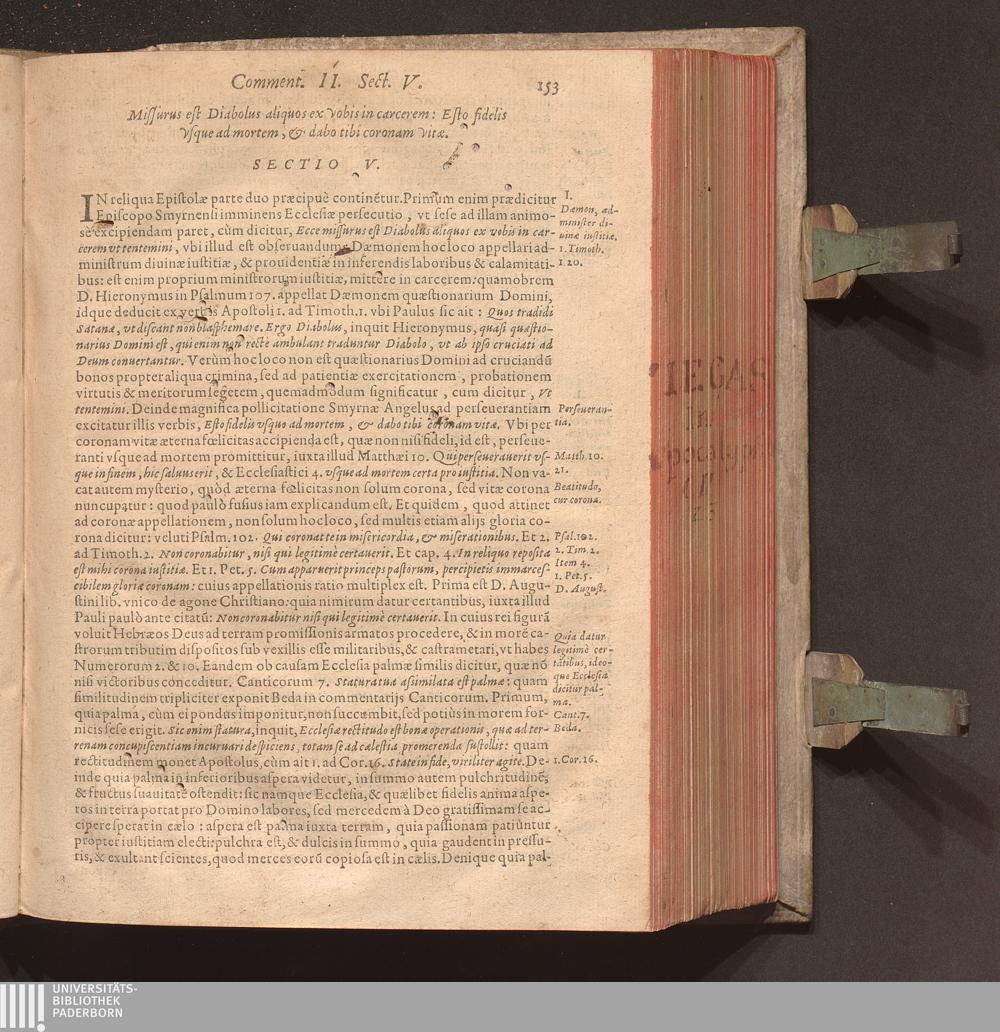 Comment. II. Sect. V. 153
Missurus est Diabolus aliquos ex vobis in carcerem: Esto fidelis
vsque ad mortem, & dabo tibi coronam vitæ.
SECTIO V.
IN reliqua Epistolæ parte duo præcipuè continẽtur. Primum enim prædicitur
Episcopo Smyrnensi imminens Ecclesiæ persecutio, vt sese ad illam animo-
sè excipiendam paret, cùm dicitur, Ecce missurus est Diabolus aliquos ex vobis in car-
cerem vt tentemini, vbi illud est obseruandum: Dæmonem hoc loco appellari ad-
ministrum diuinæ iustitiæ, & prouidentiæ in inferendis laboribus & calamitati-
bus: est enim proprium ministrorum iustitiæ, mittere in carcerem: quamobrem
D. Hieronymus in Psalmum 107. appellat Dæmonem quæstionarium Domini,
idque deducit ex verbis Apostoli 1. ad Timoth. 1. vbi Paulus sic ait: Quos tradidi
Satanæ, vt discant non blasphemare. Ergo Diabolus, inquit Hieronymus, quasi quæstio-
narius Domini est, qui enim non rectè ambulant traduntur Diabolo, vt ab ipso cruciati ad
Deum conuertantur. Verùm hoc loco non est quæstionarius Domini ad cruciandũ
bonos propter aliqua crimina, sed ad patientiæ exercitationem, probationem
virtutis & meritorum segetem, quemadmodum significatur, cum dicitur, Vt
tentemini. Deinde magnifica pollicitatione Smyrnæ Angelus ad perseuerantiam
excitatur illis verbis, Esto fidelis vsque ad mortem, & dabo tibi coronam vitæ. Vbi per
coronam vitæ æterna fœlicitas accipienda est, quæ non nisi fideli, id est, perseue-
ranti vsque ad mortem promittitur, iuxta illud Matthæi 10. Qui perseuerauerit vs-
que in finem, hic saluus erit, & Ecclesiastici 4. vsque ad mortem certa pro iustitia. Non va-
cat autem mysterio, quòd æterna fœlicitas non solum corona, sed vitæ corona
nuncupatur: quod paulò fusius iam explicandum est. Et quidem, quod attinet
ad coronæ appellationem, non solum hoc loco, sed multis etiam alijs gloria co-
rona dicitur: veluti Psalm. 102. Qui coronat te in misericordia, & miserationibus. Et 2.
ad Timoth. 2. Non coronabitur, nisi qui legitimè certauerit. Et cap. 4. In reliquo reposita
est mihi corona iustitiæ. Et 1. Pet. 5. Cum apparuerit princeps pastorum, percipietis immarces-
cibilem gloriæ coronam: cuius appellationis ratio multiplex est. Prima est D. Augu-
stini lib. vnico de agone Christiano: quia nimirum datur certantibus, iuxta illud
Pauli paulò ante citatũ: Non coronabitur nisi qui legitimè certauerit. In cuius rei figurã
voluit Hebræos Deus ad terram promissionis armatos procedere, & in morẽ ca-
strorum tributim dispositos sub vexillis esse militaribus, & castrametari, vt habes
Numerorum 2. & 10. Eandem ob causam Ecclesia palmæ similis dicitur, quæ nõ
nisi victoribus conceditur. Canticorum 7. Statura tua assimilata est palmæ: quam
similitudinem tripliciter exponit Beda in commentarijs Canticorum. Primum,
quia palma, cùm ei pondus imponitur, non succumbit, sed potiùs in morem for-
nicis sese erigit. Sic enim statura, inquit, Ecclesiæ rectitudo est bonæ operationis, quæ ad ter-
renam concupiscentiam incuruari despiciens, totam se ad cælestia promerenda sustollit: quam
rectitudinem monet Apostolus, cùm ait 1. ad Cor. 16. State in fide, viriliter agite. De-
inde quia palma in inferioribus aspera videtur, in summo autem pulchritudinẽ,
& fructus suauitatẽ ostendit: sic namque Ecclesia, & quælibet fidelis anima aspe-
ros in terra portat pro Domino labores, sed mercedem à Deo gratissimam se ac-
cipere sperat in cælo: aspera est palma iuxta terram, quia passionam patiuntur
propter iustitiam electi: pulchra est, & dulcis in summo, quia gaudent in pressu-
ris, & exultant scientes, quod merces eorũ copiosa est in cælis. Denique quia pal-
I.
Dæmon, ad-
minister di-
uinæ iustitiæ.
1. Timoth.
1 20.
Perseueran-
tia.
Matth. 10.
21.
Beatitudo,
cur corona.
Psal. 102.
2. Tim. 2.
Item 4.
1. Pet. 5.
D. August.
Quia datur
legitimè cer-
tãtibus, ideo-
que Ecclesia
dicitur pal-
ma.
Cant. 7.
Beda.
1. Cor. 16.
VIEGAS
In
Apocalyps
UNIVERSITÄTS-
BIBLIOTHEK
PADERBORN